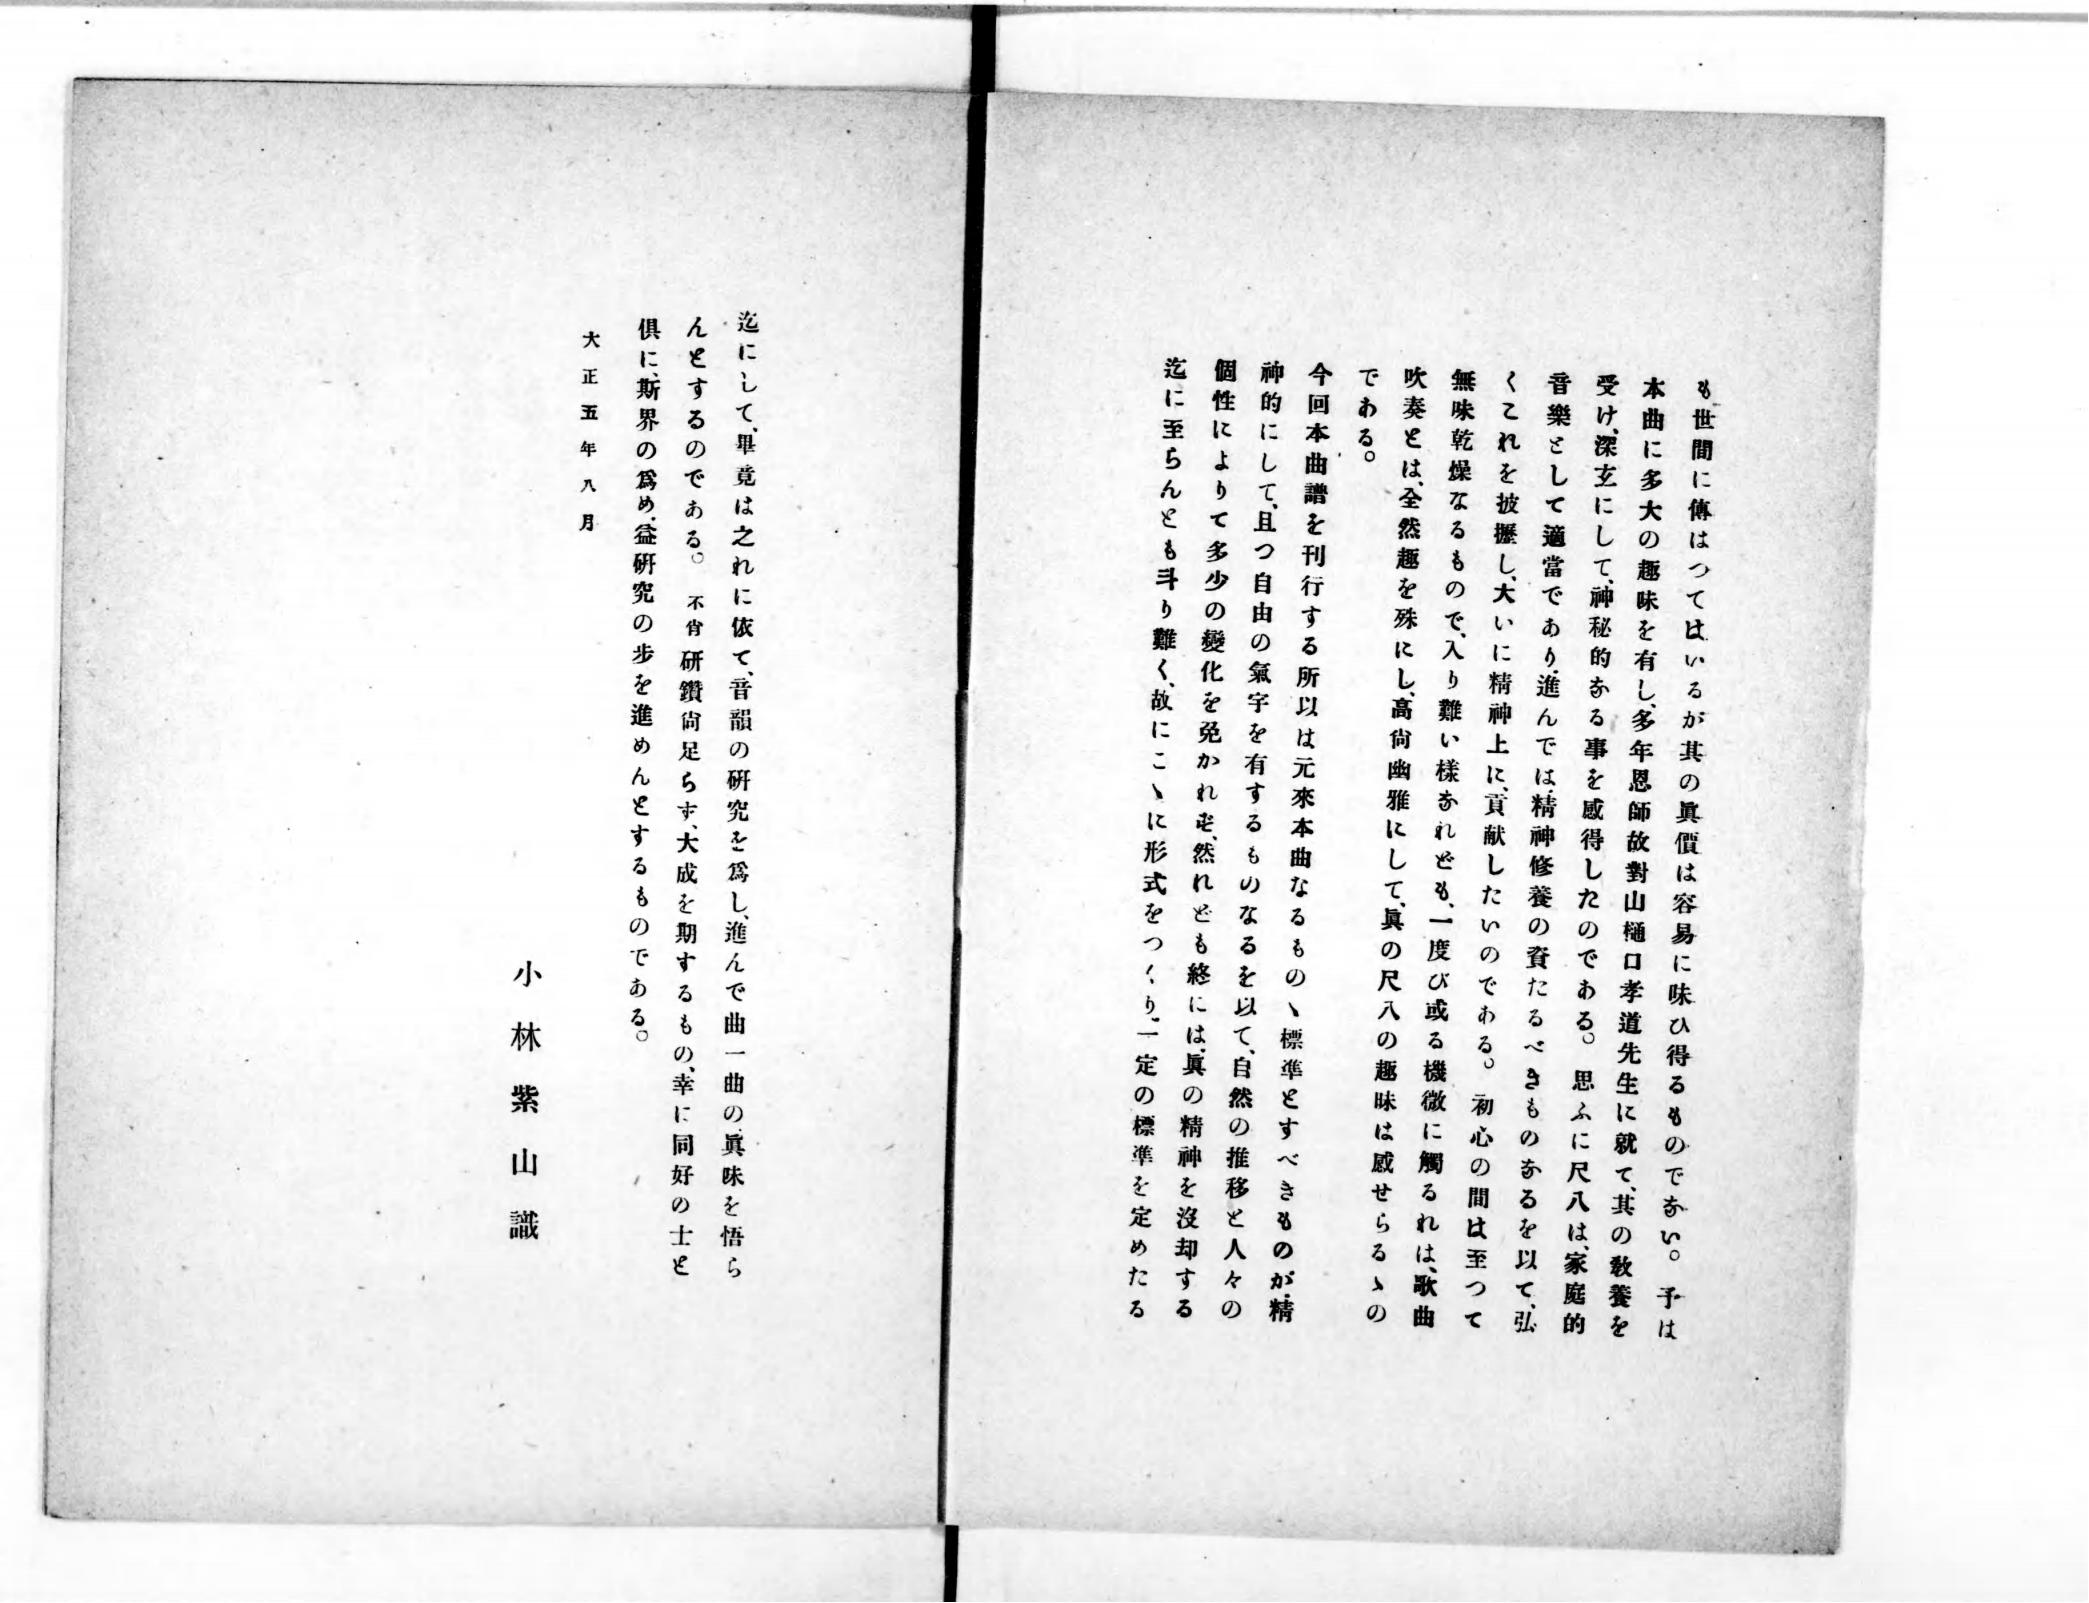 も世間に傳はつてはいるが其の眞價は容易に味ひ得るものでない。予は
本曲に多大の趣味を有し、多年恩師故對山樋口孝道先生に就て、其の敎養を
受け、深玄にして、神秘的なる事を感得したのである。思ふに尺八は、家庭的
音樂として適當であり、進んでは、精神修養の資たるべきものなるを以て、弘
くこれを披攊し、大いに精神上に、貢献したいのである。初心の間は至つて
無味乾燥なるもので、入り難い樣なれども、一度び或る機微に觸るれは、歌曲
吹奏とは、全然趣を殊にし、高尙幽雅にして、眞の尺八の趣味は感せらるゝの
である。
今回本曲譜を刊行する所以は元來本曲なるものゝ標準とすべきものが、精
神的にして、且つ自由の氣宇を有するものなるを以て、自然の推移と人々の
個性によりて多少の變化を免かれず、然れども終には、眞の精神を沒却する
迄に至らんとも斗り難く、故にこゝに形式をつくり、一定の標準を定めたる
迄にして、畢竟は之れに依て、音韻の硏究を爲し、進んで曲一曲の眞味を悟ら
んとするのである。不肖研鑽尙足らず、大成を期するもの、幸に同好の士と
俱に、斯界の爲め、益硏究の步を進めんとするものである。
大正五年八月
小林紫山識